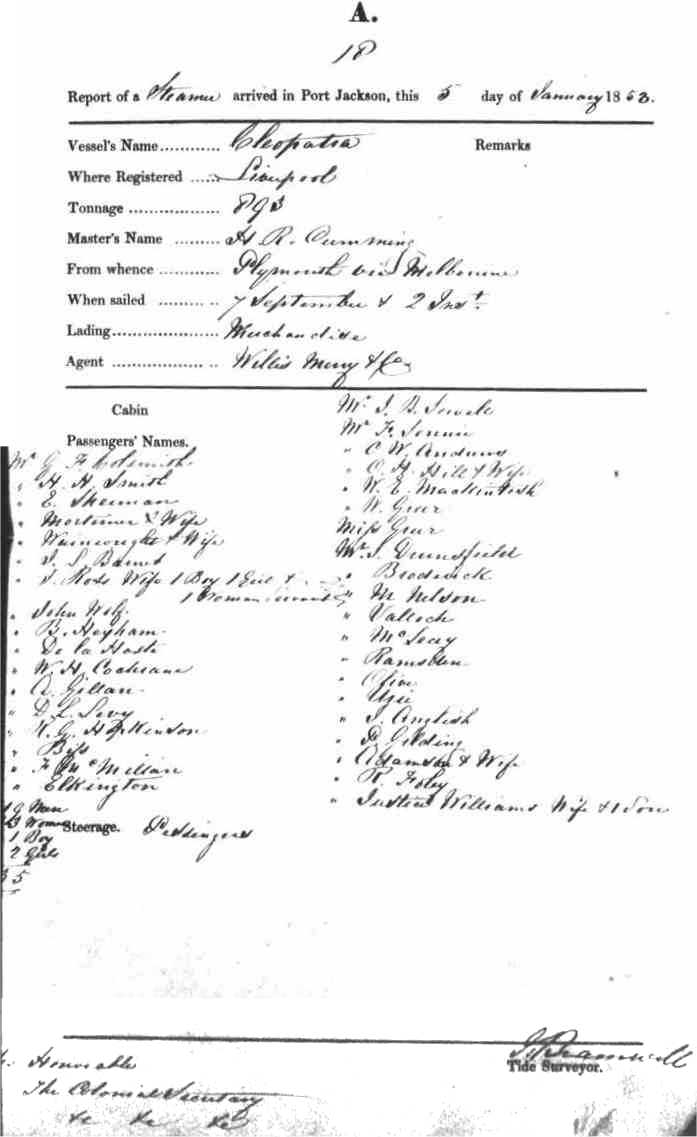 A.
18
Report of a Steamer arrived in Port Jackson, this 5 day of January 1853.
Vessel's Name Cleopatra Remarks
Where Registered Liverpool
Tonnage 893
Master's Name H R. Cumming
From whence Plymouth via Melbourne
When sailed 7 September & 2 Inst.
Lading Merchandise
Agent Willis Merry & Co
Cabin
Passengers' Names.
Mr G. F.
" H. H. Smith
" E. Sherman
" Mortimer & Wife
" Wainwright & Wife
" J. S. Barnet
" J. Ross Wife 1 Boy 1 Girl &
1 Woman servant
" John Wolf
" B. Heyham
" De la Hoste
" W. H. Cochrane
" A. Gillan
" D. L. Levy
" R. G. Hopkinson
" Biss
" F McMillan
" Elkington
Mr J. B. Sewell
Mr F.
" C W. Andrews
" O. H. Hill & Wife
" W. E. Mackintosh
" W. Greer
Miss Greer
Mr J. Dunnsfield
" Brodrick
" M Nelson
" Valloch
" Ramsden
" J. Anglish
" Gilding
" Adamson & Wife
" R. Foley
" Justin Williams Wife & 1 Son
19 Men
13 Women
1 Boy
2 Girls
35
Steerage. Passengers
Tide Surveyor.
Honorable
The Colonial Secretary
&c &c &c